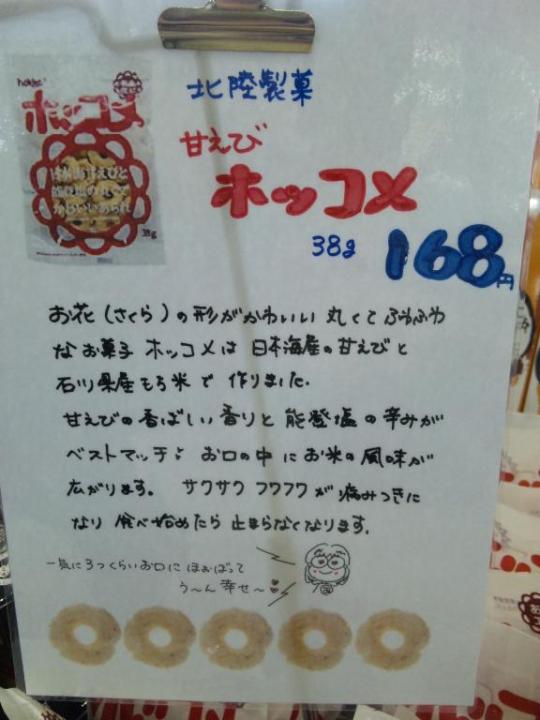 北陸製菓
ホッコメ
甘えび
日本海甘えびと
能登塩の丸くて
かわいいあられ
38g
ホッコメ
38g 168円
お花(さくら)の形がかわいい 丸くてふわふわ
なお菓子 ホッコメは 日本海産の甘えびと
石川県産もち米で 作りました.
甘えびの香ばしい香りと 能登塩の辛みが
ベストマッチ♪ お口の中にお米の風味が
広がります。 サクサク フワフワが病みつきに
なり 食べ始めたら 止まらなくなります。
一気に3つくらいお口に ほおばって
う〜ん 幸せ〜